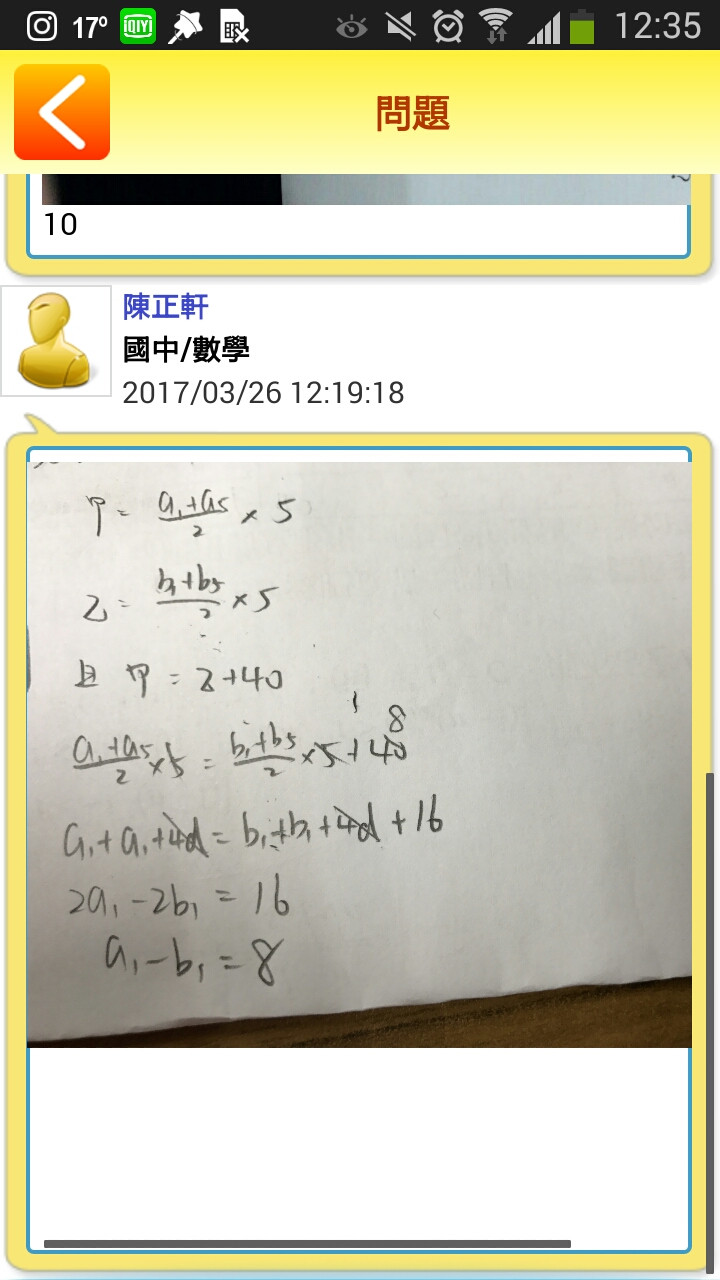 17°
iQIYI
12:35
問題
10
陳正軒
國中/數學
2017/03/26 12:19:18
甲 = (a₁+a₅)/2 × 5
乙 = (b₁+b₅)/2 × 5
且 甲 = 乙+40
(a₁+a₅)/2 × 5 = (b₁+b₅)/2 × 5 + 40 8
a₁+a₁+4d = b₁+b₁+4d+16
2a₁-2b₁ = 16
a₁-b₁ = 8